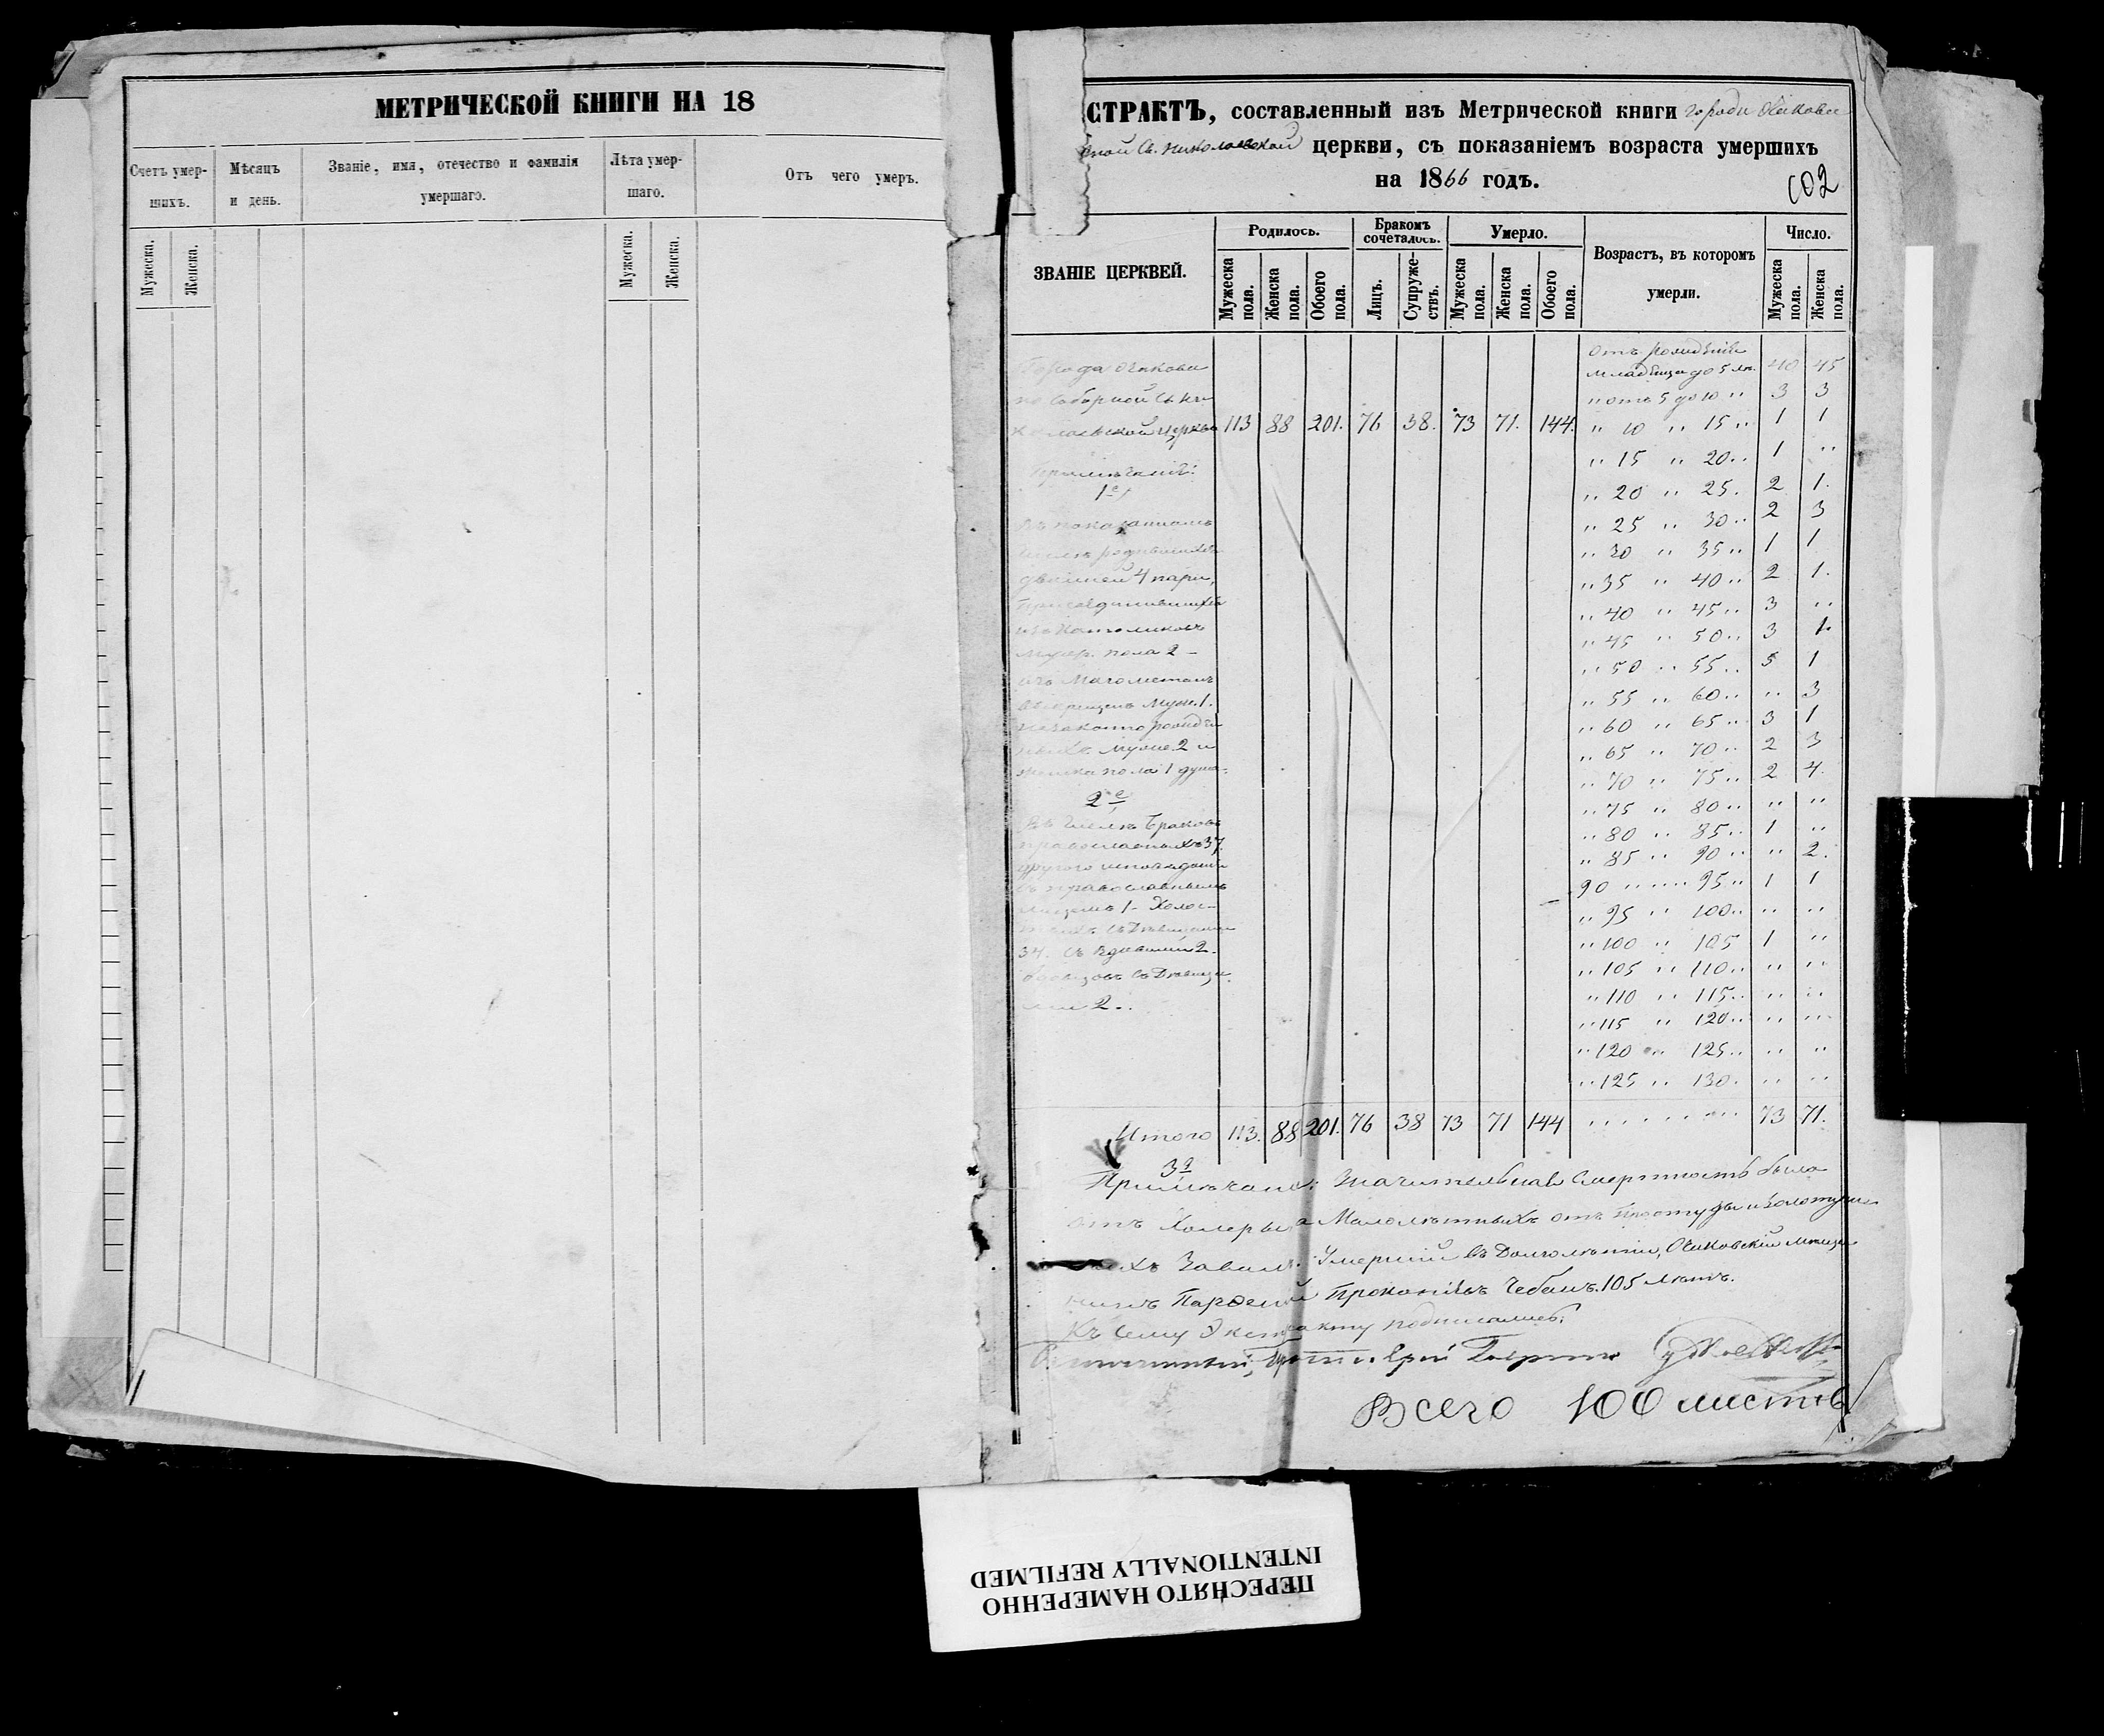 МЕТРИЧЕСКОЙ КНИГИ НА 18
Счетъ умер-
шихъ.
Мѣсяцъ
и день.
Званіе, имя, отечество и фамилія
умершаго.
Лѣта умер-
шаго.
Отъ чего умеръ.
Мужеска.
Женска.
Мужеска.
Женска.
СТРАКТЪ, составленный изъ Метрической книги города Очакова
ной Св. Николаевской церкви, съ показаніемъ возраста умершихъ
на 1866 годъ.
102
ЗВАНІЕ ЦЕРКВЕЙ.
Родилось.
Бракомъ
сочеталось.
Умерло.
Возрастъ, въ которомъ
умерли.
Число.
Мужеска пола.
Женска пола.
Обоего пола.
Лицъ.
Супруже-
ствъ.
Мужеска пола.
Женска пола.
Обоего пола.
Мужеска пола.
Женска пола.
Города Очакова
по Соборной Св. Ни-
колаевской церкви 113 88 201. 76 38. 73 71. 144.
Примѣчаніе:
1е
Въ показанномъ
числѣ родившихся
двойней 4 пары,
Присоединившихся
изъ Католиковъ
Муж. пола 2 -
изъ Магометанъ
Муж. 1.
незаконнорожден
ныхъ муже. 2 и
женска пола 1 душа.
2е
Въ числѣ браковъ
православныхъ 37
другого исповѣданія
съ православнымъ
лицемъ 1 - Холос-
тыхъ съ Дѣвицами
34. съ Вдовами 2.
вдовцовъ съ Дѣвица
ми 2.
Отъ рожденія
младенца до 5 лѣ. 40 45
" отъ 5 до 10 " 3 3
" 10 " 15 " 1 1
" 15 " 20 " 1 "
" 20 " 25. 2 1.
" 25 " 30 " 2 3
" 30 " 35 " 1 1
" 35 " 40 " 2 1.
" 40 " 45 " 3 "
" 45 " 50 " 3 1.
" 50 " 55 " 5 1
" 55 " 60 " " 3
" 60 " 65 " 3 1
" 65 " 70 " 2 3
" 70 " 75 " 2 4.
" 75 " 80 " " "
" 80 " 85 " 1 "
" 85 " 90 " " 2.
90 " " 95 " 1 1
" 95 " 100 " " "
" 100 " 105 1 "
" 105 " 110 " " "
" 110 " 115 " " "
" 115 " 120 " " "
" 120 " 125 " " "
" 125 " 130. " "
Итого 113. 88 201. 76 38 73 71 144 73 71.
3е
Примѣчаніе: Значительная Смертность была
отъ Холеры а Малолѣтныхъ отъ Простуды и Золотухи
Умершій въ Долголѣтіи, Очаковскій мѣща
нинъ Парѳеній Прокопіевъ Чебанъ. 105 лѣтъ.
Къ Сему Экстракту подписались:
Всего 100 листовъ
ПЕРЕСНЯТО НАМЕРЕННО
INTENTIONALLY REFILMED